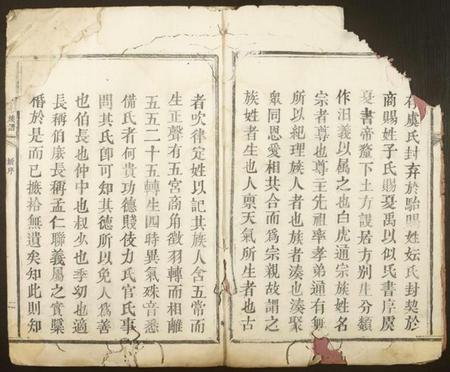 虞氏封弃於駘賜姓姬氏封契於
商賜姓子氏賜夏禹以姒氏書序虞
夏書帝釐下土方設居方別生分類
作汨義以属之也白虎通宗族姓名
宗者尊也尊主先祖率孝弟通有無
所以紀理族人者也族者湊也湊聚
衆同恩愛相共合而為宗親故謂之
族姓者生也人禀天氣所生者也古
者吹律定姓以記其族人含五常而
生正聲有五宮商角徵羽轉而相雜
五五二十五轉生四時異氣殊音悉
備氏者何貴功德賤伎力氏官氏事
聞其氏卽可知其德所以免人為善
也伯長也仲中也叔少也季幼也適
長稱伯庶長稱孟仁聯義屬之實槩
俻於是而已摭拾無遺矣知此則知
族譜
新序